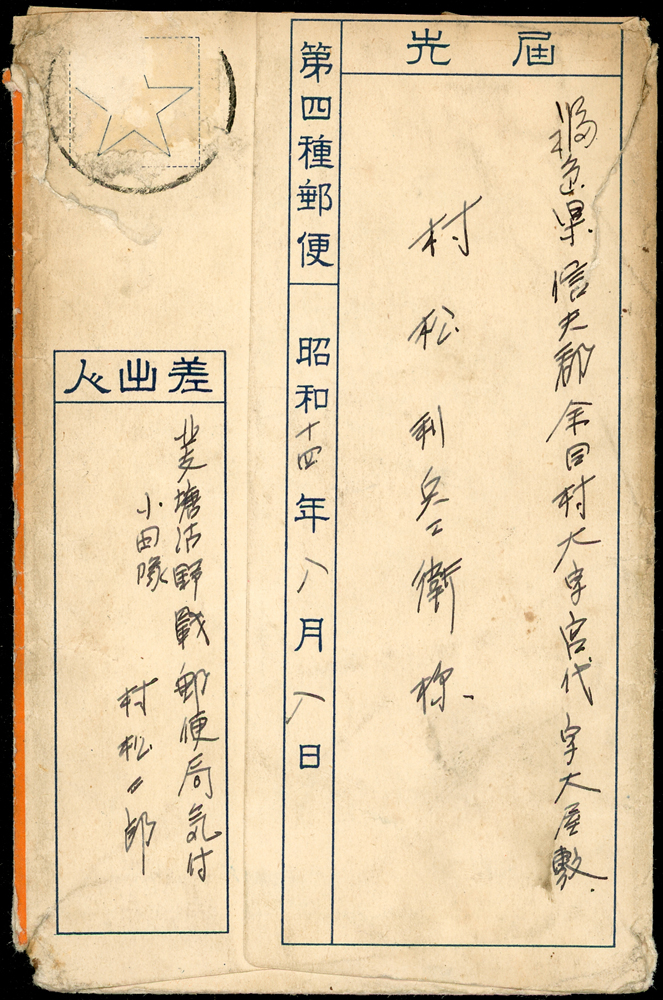 届先
福島県信夫郡余目村大字宮代字大屋敷
村松利兵衛様
第四種郵便
昭和十四年八月八日
差出人
北支塘沽野戰郵便局気付
小田隊
村松